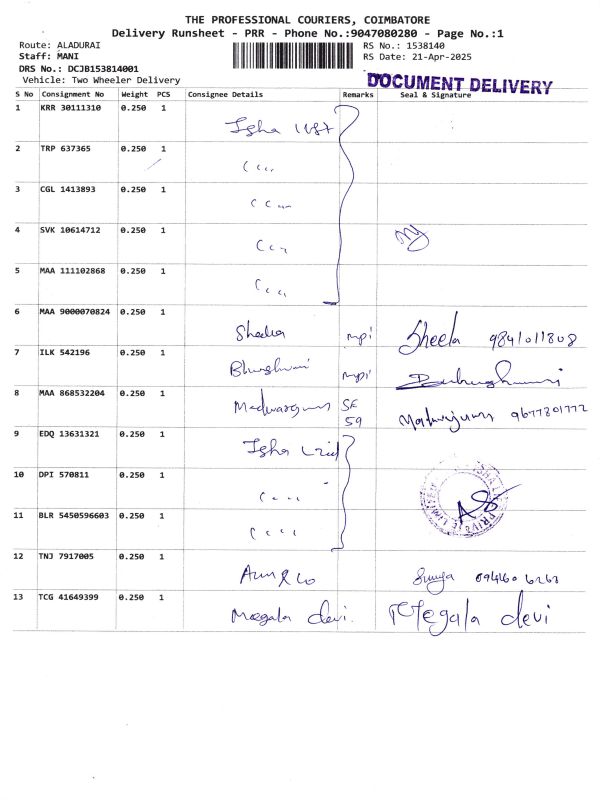 THE PROFESSIONAL COURIERS, COIMBATORE
Delivery Runsheet - PRR - Phone No.:9047080280 - Page No.:1
Route: ALADURAI
RS No.: 1538140
Staff: MANI
RS Date: 21-Apr-2025
DRS No.: DCJB153814001
Vehicle: Two Wheeler Delivery
DOCUMENT DELIVERY
S No Consignment No Weight PCS Consignee Details Remarks Seal & Signature
1 KRR 30111310 0.250 1
Isha
2 TRP 637365 0.250 1
3 CGL 1413893 0.250 1
4 SVK 10614712 0.250 1
5 MAA 111102868 0.250 1
6 MAA 9000070824 0.250 1
mpi Sheela 9841011808
7 ILK 542196 0.250 1
mpi
8 MAA 868532204 0.250 1
59 9677801772
9 EDQ 13631321 0.250 1
Isha
10 DPI 570811 0.250 1
11 BLR 5450596603 0.250 1
PRIVATE LIMITED
12 TNJ 7917005 0.250 1
13 TCG 41649399 0.250 1
Megala devi. Megala devi